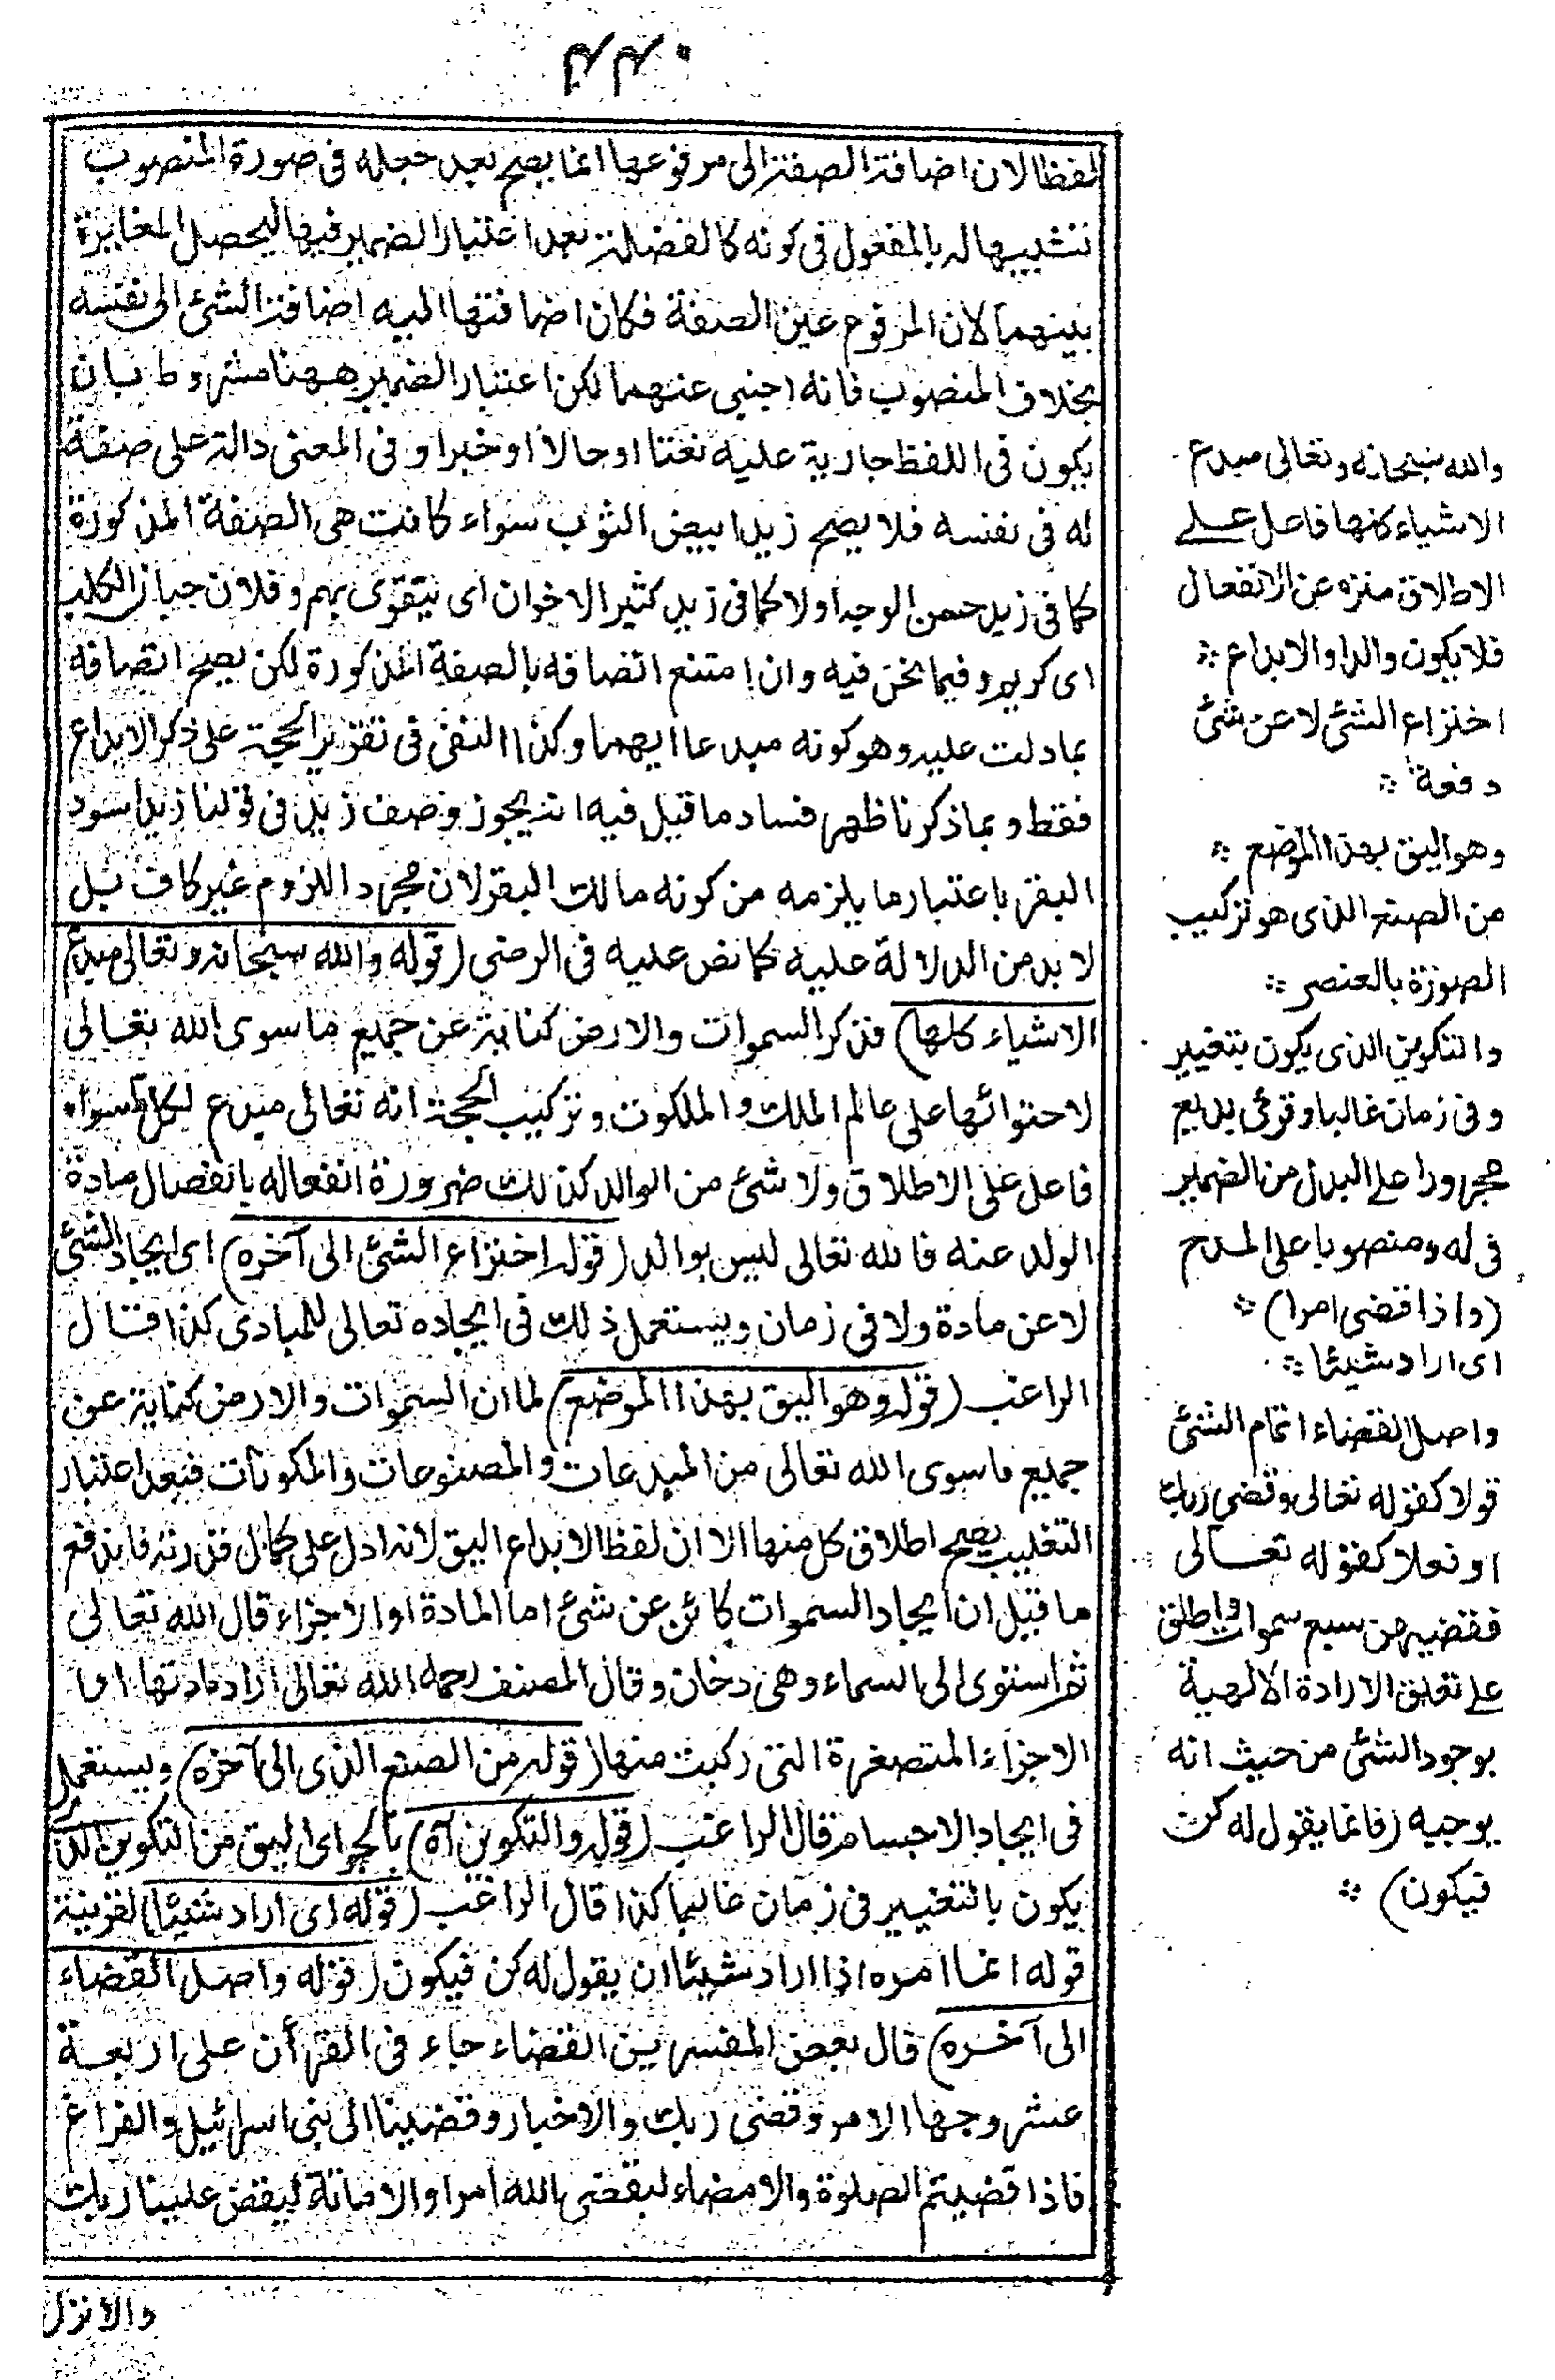 ٤٤٠
لفظا لان اضافة الصفة الى مرفوعها انما يصح بعد جعله فى صورة المنصوب
تشبيها له بالمفعول فى كونه كالفضلة بعد اعتبار الضمير فيها ليحصل المغايرة
بينهما لان المرفوع عين الصفة فكان اضافتها اليه اضافة الشئ الى نفسه
بخلاف المنصوب فانه اجنبى عنهما لكن اعتبار الضمير ههنا مشروط بان
يكون فى اللفظ جارية عليه نعتا او حالا او خبرا و فى المعنى دالة على صفة
له فى نفسه فلا يصح زيد ابيض الثوب سواء كانت هى الصفة المذكورة
كما فى زيد حسن الوجه اولا كما فى زيد كثير الاخوان اى يتقوى بهم وفلان جبان الكلب
اى كريم وفيما نحن فيه وان امتنع اتصافه بالصفة المذكورة لكن يصح اتصافه
بما دلت عليه وهو كونه مبدعا ايهما وكذا النفى فى تقرير الحجة على ذكر الابداع
فقط و بما ذكرنا ظهر فساد ما قيل فيه انه يجوز وصف زيد فى قولنا زيد اسود
البقر باعتبار ما يلزمه من كونه مالك البقر لان مجرد اللزوم غير كاف بل
لا بد من الدلالة عليه كما نص عليه فى الرضى (قوله والله سبحانه وتعالى مبدع
الاشياء كلها) فذكر السموات والارض كناية عن جميع ما سوى الله تعالى
لاحتوائها على عالم الملك والملكوت وتركيب الحجة انه تعالى مبدع لكل ما سواه
فاعل على الاطلاق ولا شئ من الوالد كذلك ضرورة انفعاله بانفصال مادة
الولد عنه فالله تعالى ليس بوالد (قوله اختراع الشئ الى آخره) اى ايجاد الشئ
لا عن مادة ولا فى زمان ويستعمل ذلك فى ايجاده تعالى للمبادى كذا قال
الراغب (قوله وهو اليق بهذا الموضع) لما ان السموات والارض كناية عن
جميع ما سوى الله تعالى من المبدعات والمصنوعات والمكونات فبعد اعتبار
التغليب يصح اطلاق كل منها الا ان لفظ الابداع اليق لانه ادل على كمال قدرته فاندفع
ما قيل ان ايجاد السموات كائن عن شئ اما المادة او الاجزاء قال الله تعالى
ثم استوى الى السماء وهى دخان وقال المصنف رحمه الله تعالى اراد مادتها او
الاجزاء المتصغرة التى ركبت منها (قوله من الصنع الذى الى آخره) ويستعمل
فى ايجاد الاجسام قال الراغب (قوله والتكوين آه) بالجر اى اليق من التكوين الذى
يكون بالتغيير فى زمان غالبا كذا قال الراغب (قوله اى اراد شيئا) لقرينة
قوله انما امره اذا اراد شيئا ان يقول له كن فيكون (قوله واصل القضاء
الى آخره) قال بعض المفسرين القضاء جاء فى القرأن على اربعة
عشر وجها الامر وقضى ربك والاخبار وقضينا الى بنى اسرائيل والفراغ
فاذا قضيتم الصلوة والامضاء ليقضى الله امرا والاماتة ليقض علينا ربك
والانزل
والله سبحانه وتعالى مبدع
الاشياء كلها فاعل على
الاطلاق منزه عن الانفعال
فلا يكون والدا والابداع
اختراع الشئ لا عن شئ
دفعة
وهو اليق بهذا الموضع
من الصنع الذى هو تركيب
الصورة بالعنصر
والتكوين الذى يكون بتغيير
وفى زمان غالبا وقرئ بديع
مجرورا على البدل من الضمير
فى له ومنصوبا على المدح
(واذا قضى امرا)
اى اراد شيئا
واصل القضاء اتمام الشئ
قولا كقوله تعالى وقضى ربك
او فعلا كقوله تعالى
فقضيهن سبع سموات واطلق
على تعلق الارادة الالهية
بوجود الشئ من حيث انه
يوجبه (فانما يقول له كن
فيكون)